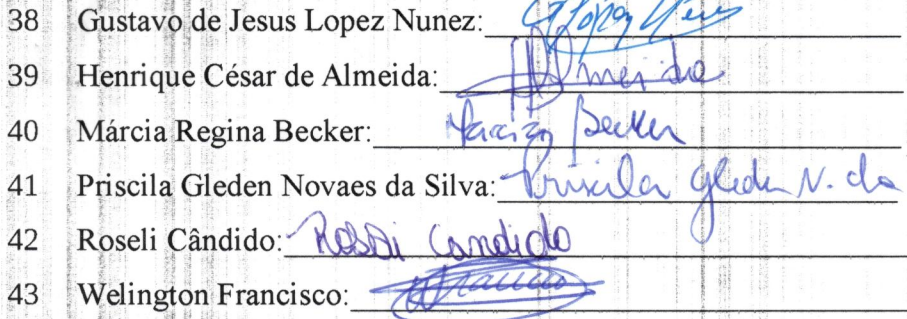 38 Gustavo de Jesus Lopez Nunez: GLopez Nun
39 Henrique César de Almeida: HAlmeida
40 Márcia Regina Becker: Marcia Becker
41 Priscila Gleden Novaes da Silva: Priscila Gleden N. da
42 Roseli Cândido: Roseli Candido
43 Welington Francisco: